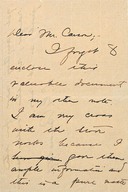 Dear Mr. Carson,
I forgot to
enclose this
valuable document
in my other note.
I am my cross
with the
works because I
gave them
ample information and
this is a pure waste